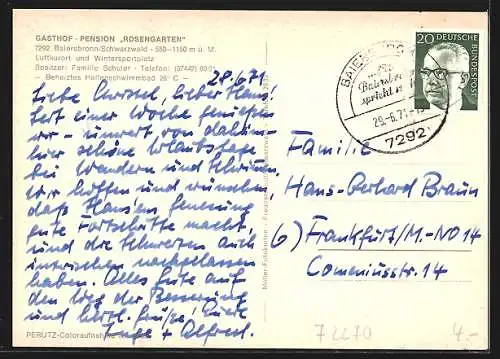 GASTHOF - PENSION „ROSENGARTEN"
7292 Baiersbronn/Schwarzwald - 550-1150 m ü. M.
Luftkurort und Wintersportplatz
Besitzer: Familie Schuler - Telefon: (07442)
– Beheiztes Hallenschwimmbad 28° C –
29.6.71
Liebe Christel, lieber Hans!
Seit einer Woche genießen
wir – unweit von
hier schöne Urlaubstage
bei Wandern und Schwimmen.
Wir hoffen und wünschen,
daß Hansens Genesung
gute Fortschritte macht,
und die Schmerzen auch
inzwischen nachgelassen
haben. Alles Gute auf
den Weg der Besserung
und herzl. Grüße! Eure
Inge + Alfred.
PERUTZ-Coloraufnahme
20 DEUTSCHE BUNDESPOST
BAIERSBRONN
spricht
29.-6.71
7292
Familie
Hans-Gerhard Braun
(6) Frankfurt/M.-NO 14
Comeniusstr. 14
72270
4.-